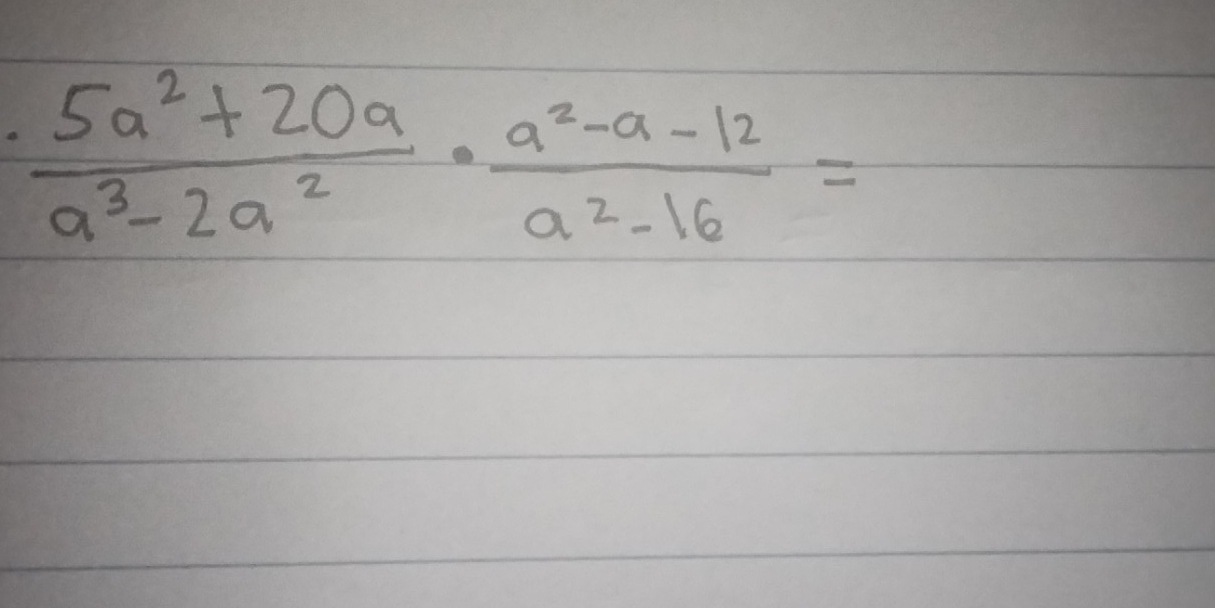 . 5a²+20a / a³-2a² • a²-a-12 / a²-16 =